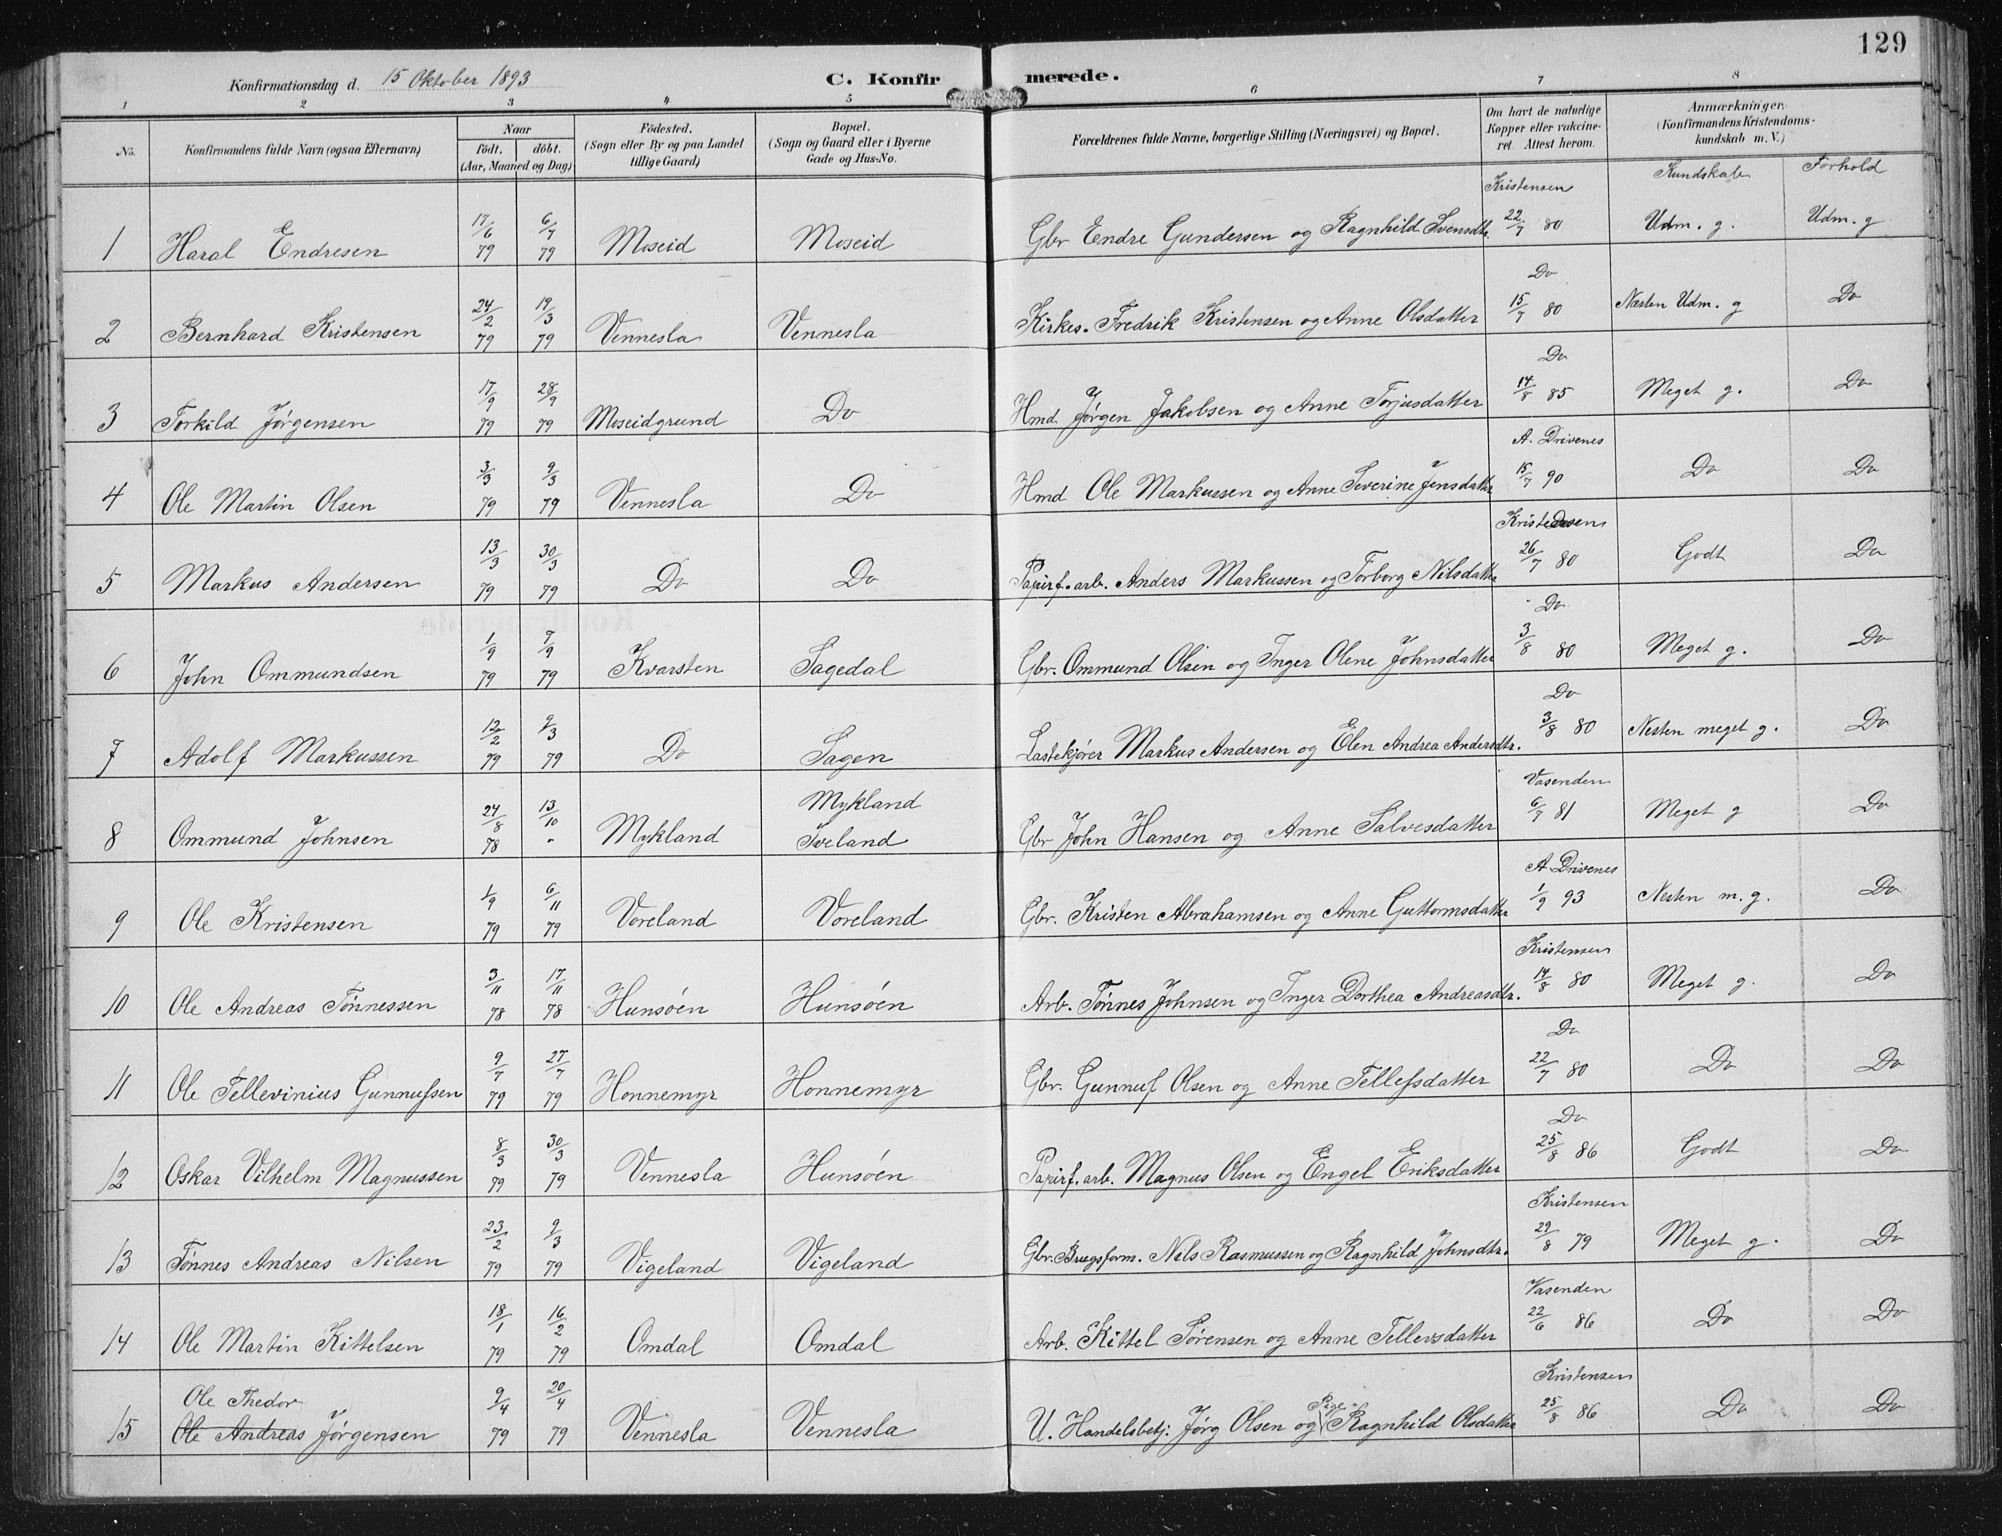 129
Konfirmationsdag d. 15 Oktober 1893 C. Konfirmerede.
1 2 3 4 5 6 7 8
No. Konfirmandens fulde Navn (ogsaa Efternavn) Naar født. døbt. (Aar, Maaned og Dag) Fødested. (Sogn eller By og paa Landet tillige Gaard) Bopæl. (Sogn og Gaard eller i Byerne Gade og Hus-No. Forældrenes fulde Navne, borgerlige Stilling (Næringsvei) og Bopæl. Om havt de naturlige Kopper eller vakcineret. Attest herom. Anmærkninger. (Konfirmandens Kristendomskundskab m. V.)
Kundskab Forhold
1 Haral Endresen 17/6 79 6/7 79 Moseid Moseid Gbr Endre Gundersen og Ragnhild Svensdtr. Kristensen 22/7 80 Udm. g. Udm. g
2 Bernhard Kristensen 24/2 79 19/3 79 Vennesla Vennesla Kirkes. Fredrik Kristensen og Anne Olsdatter Do 15/7 80 Næsten Udm. g Do
3 Torkild Jørgensen 17/9 79 28/9 79 Moseidgrund Do Hmd. Jørgen Jakobsen og Anne Torjusdatter Do 14/8 85 Meget g. Do
4 Ole Martin Olsen 3/3 79 9/3 79 Vennesla Do Hmd Ole Markussen og Anne Severine Jensdatter A. Drivenes 15/7 90 Do Do
5 Markus Andersen 13/3 79 30/3 79 Do Do Papirf. arb. Anders Markussen og Torborg Nilsdatter Kristensen 26/7 80 Godt Do
6 John Ommundsen 1/9 79 7/9 79 Kvarsten Sagedal Gbr. Ommund Olsen og Inger Olene Johnsdatter Do 3/8 80 Meget g. Do
7 Adolf Markussen 12/2 79 9/3 79 Do Sagen Lastekjører Markus Andersen og Elen Andrea Andersdtr. Do 3/8 80 Nesten meget g. Do
8 Ommund Johnsen 24/8 78 13/10 " Mykland Mykland Iveland Gbr John Hansen og Anne Salvesdatter Vasenden 6/7 81 Meget g Do
9 Ole Kristensen 1/9 79 6/11 79 Voreland Voreland Gbr. Kristen Abrahamsen og Anne Guttormsdatter A. Drivenes 1/9 93 Nesten m. g. Do
10 Ole Andreas Tønnessen 3/11 78 17/11 78 Hunsøen Hunsøen Arb. Tønnes Johnsen og Inger Dorthea Andreasdtr. Kristensen 14/8 80 Meget g. Do
11 Ole Tellevinius Gunnufsen 9/7 79 27/7 79 Honnemyr Honnemyr Gbr. Gunnuf Olsen og Anne Tellefsdatter Do 22/7 80 Do Do
12 Oskar Vilhelm Magnussen 8/3 79 30/3 79 Vennesla Hunsøen Papirf. arb. Magnus Olsen og Engel Eriksdatter Do 25/8 86 Godt Do
13 Tønnes Andreas Nilsen 23/2 79 9/3 79 Vigeland Vigeland Gbr. Brugsform. Nils Rasmussen og Ragnhild Johnsdtr. Kristensen 29/8 79 Meget g. Do
14 Ole Martin Kittelsen 18/1 79 16/2 79 Omdal Omdal Arb. Kittel Sørensen og Anne Tellevsdatter Vasenden 22/6 86 Do Do
15 Ole Thedor Ole Andreas Jørgensen 9/4 79 20/4 79 Vennesla Vennesla U. Handelsbetj. Jørg Olsen og Pige Ragnhild Olsdatter Kristensen 25/8 86 Do Do